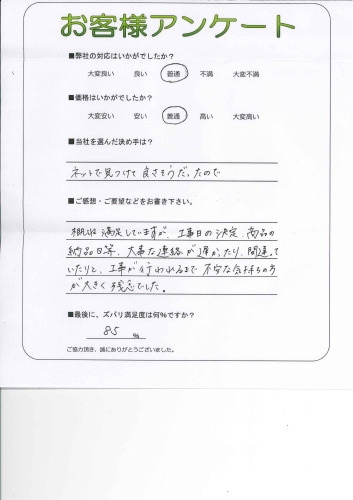 お客様アンケート
■弊社の対応はいかがでしたか?
大変良い 良い 普通 不満 大変不満
■価格はいかがでしたか?
大変安い 安い 普通 高い 大変高い
■当社を選んだ決め手は?
ネットで見つけて良さそうだったので
■ご感想・ご要望などをお書き下さい。
概ね満足していますが、工事日の決定、商品の
納品日等、大事な連絡が遅かったり、間違って
いたりと、工事が行われるまで不安な気持ちの方
が大きく残念でした。
■最後に、ズバリ満足度は何%ですか?
85 %
ご協力頂き、誠にありがとうございました。